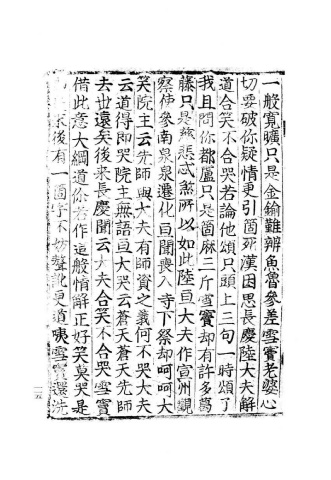 一般寬曠只是金鍮難辨魚魯參差雪竇老婆心
切要破你疑情更引箇死漢因思長慶陸大夫解
道合笑不合哭若論他頌只頭上三句一時頌了
我且問你都盧只箇麻三斤雪竇却有許多葛
藤只是慈悲忒煞所以如此陸亘大夫作宣州觀
察使參南泉泉遷化亘聞喪入寺下祭却呵呵大
笑院主云先師與大夫有師資之義何不哭大夫
云道得即哭院主無語亘大哭云蒼天蒼天先師
去世遠矣後來長慶聞云大夫合笑不合哭雪竇
借此意大綱道你若作這般情解正好笑莫哭是
末後有一箇字不妨聱訛更道咦雪竇還洗